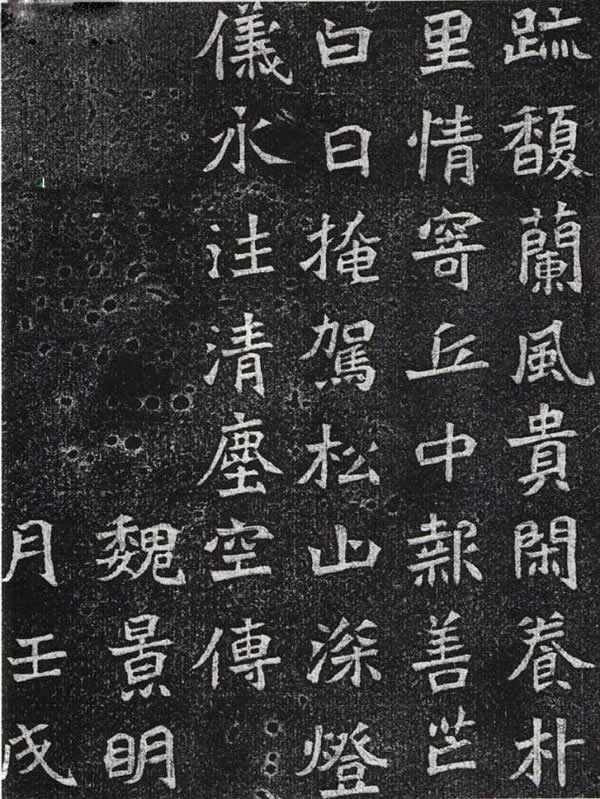 疏馥蘭風貴閑養朴
里情寄丘中報善芒
白日掩駕松山深燈
儀水注清塵空傳
魏景明
月壬戌